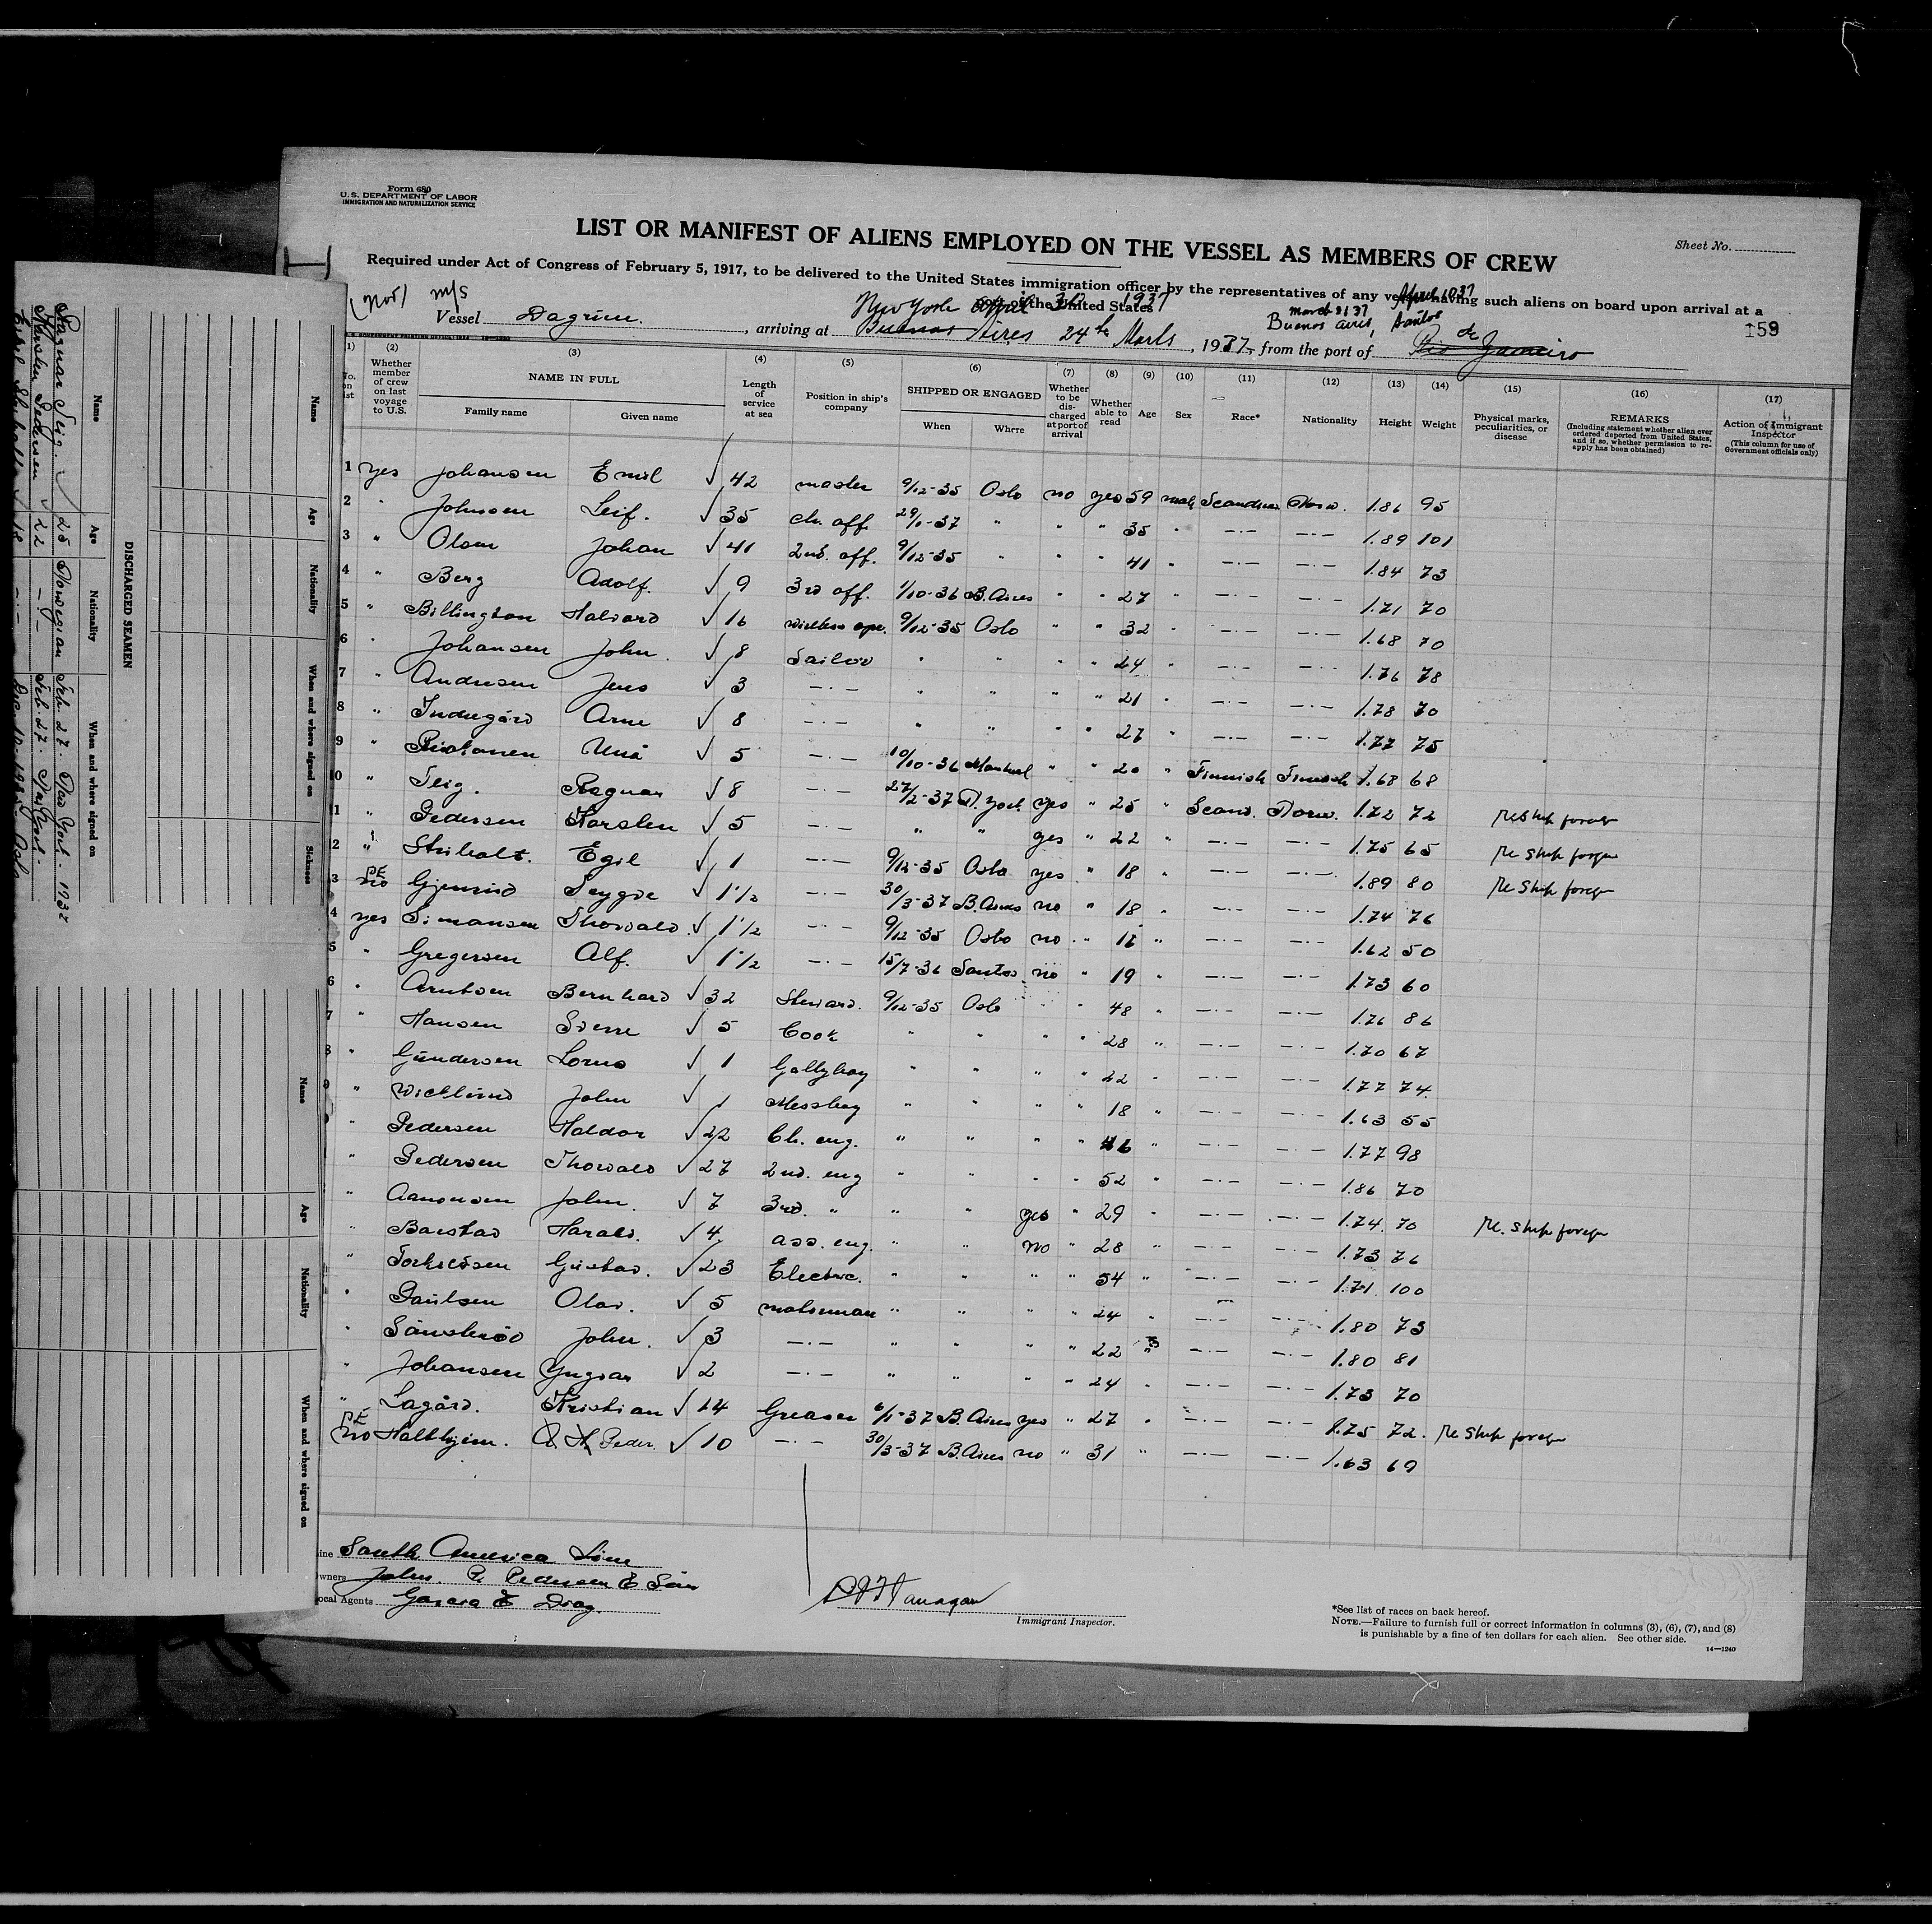 Form 680
U. S. DEPARTMENT OF LABOR
IMMIGRATION AND NATURALIZATION SERVICE
Sheet No.
LIST OR MANIFEST OF ALIENS EMPLOYED ON THE VESSEL AS MEMBERS OF CREW
Required under Act of Congress of February 5, 1917, to be delivered to the United States immigration officer by the representatives of any vessel having such aliens on board upon arrival at a
port of the United States
(Nor) m/s New York April 30 1937 March 31 37 April 10 37
Vessel Dagrun. , arriving at Buenos Aires 24th Marts , 1937, from the port of Buenos Aires, Santos Rio de Janeiro
159
(1) (2) (3) (4) (5) (6) (7) (8) (9) (10) (11) (12) (13) (14) (15) (16) (17)
No. on list Whether member of crew on last voyage to U.S. NAME IN FULL Family name Given name Length of service at sea Position in ship's company SHIPPED OR ENGAGED When Where Whether to be discharged at port of arrival Whether able to read Age Sex Race* Nationality Height Weight Physical marks, peculiarities, or disease REMARKS (Including statement whether alien ever ordered deported from United States, and if so, whether permission to reapply has been obtained) Action of Immigrant Inspector (This column for use of Government officials only)
1 yes Johansen Emil √ 42 master 9/12-35 Oslo no yes 59 male Scandinav Norw. 1.86 95
2 " Johnsen Leif. √ 35 ch. off. 29/1-37 " " " 35 " -.- -.- 1.89 101
3 " Olsen Johan √ 41 2nd. off. 9/12-35 " " " 41 " -.- -.- 1.84 73
4 " Berg Adolf. √ 9 3rd off. 1/10-36 B.Aires " " 27 " -.- -.- 1.71 70
5 " Billington Halvard √ 16 wireless ope. 9/12-35 Oslo " " 32 " -.- -.- 1.68 70
6 " Johansen John. √ 8 Sailor " " " " 24 " -.- -.- 1.76 78
7 " Andresen Jens √ 3 -.- " " " " 21 " -.- -.- 1.78 70
8 " Indregård Arne √ 8 -.- " " " " 27 " -.- -.- 1.77 75
9 " Unó √ 5 -.- 10/10-36 Montreal " " 20 " Finnish Finnish 1.68 68
10 " Teig. Ragnar √ 8 -.- 27/2-37 N. York yes " 25 " Scand. Norw. 1.72 72 Reship foreign
1 " Pedersen Karsten √ 5 -.- " " yes " 22 " -.- -.- 1.75 65 Re Ship foreign
2 " Egil √ 1 -.- 9/12-35 Oslo yes " 18 " -.- -.- 1.89 80 Re Ship foreign
3 no √ 1 1/2 -.- 30/3-37 B.Aires no " 18 " -.- -.- 1.74 76
4 yes Simonsen Thorvald. √ 1 1/2 -.- 9/12-35 Oslo no " 18 " -.- -.- 1.62 50
5 " Gregersen Alf. √ 1 1/2 -.- 15/7-36 Santos no " 19 " -.- -.- 1.73 60
6 " Arntsen Bernhard √ 32 Steward. 9/12-35 Oslo " " 48 " -.- -.- 1.76 86
7 " Hansen Sverre √ 5 Cook " " " " 28 " -.- -.- 1.70 67
8 " Gundersen √ 1 Galleyboy " " " " 22 " -.- -.- 1.77 74
9 " Wicklund John √ 1 Messboy " " " " 18 " -.- -.- 1.63 55
" Pedersen Haldor √ 22 Ch. eng. " " " " 46 " -.- -.- 1.77 98
" Pedersen Thorvald √ 27 2nd. eng " " " " 52 " -.- -.- 1.86 70
" Aanonsen John. √ 7 3rd. " " " yes " 29 " -.- -.- 1.74 70 Re. Ship foreign
" Barstad Harald. √ 4 ass. eng. " " no " 28 " -.- -.- 1.73 76
" Torkildsen Gustav. √ 23 Electric. " " " " 54 " -.- -.- 1.71 100
" Paulsen Olav. √ 5 motorman " " " " 24 " -.- -.- 1.80 73
" John. √ 3 -.- " " " " 22 " -.- -.- 1.80 81
" Johansen Yngvar √ 2 -.- " " " " 24 " -.- -.- 1.73 70
" Lagård. Kristian √ 14 Greaser 6/1-37 B.Aires yes " 27 " -.- -.- 1.75 72. Re Ship foreign
no Peder. √ 10 -.- 30/3-37 B.Aires no " 31 " -.- -.- 1.63 69
Line South America Line
Owners John. P. Pedersen & Søn
Local Agents Garcia & Diaz.
Immigrant Inspector.
*See list of races on back hereof.
NOTE.—Failure to furnish full or correct information in columns (3), (6), (7), and (8)
is punishable by a fine of ten dollars for each alien. See other side.
14—1240
DISCHARGED SEAMEN
Name Age Nationality When and where signed on
Ragnar Teig. √ 25 Norwegian Feb. 27. New York - 1937
Karsten Pedersen √ 22 -.- Feb. 27. New York.
Name Age Nationality When and where signed on Sickness
Name Age Nationality When and where signed on